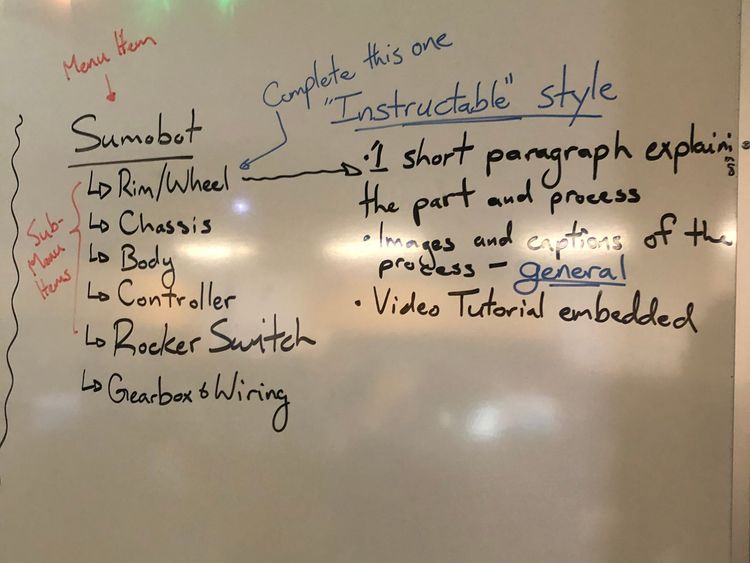 Menu Item
Complete this one
"Instructable" style
Sumobot
Sub-
Menu
Items
↳ Rim/Wheel
↳ Chassis
↳ Body
↳ Controller
↳ Rocker Switch
↳ Gearbox & Wiring
• 1 short paragraph explaining
the part and process
• Images and captions of the
process - general
• Video Tutorial embedded